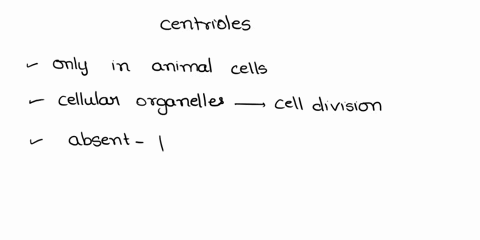 centrioles
✓ only in animal cells
✓ cellular organelles → cell division
✓ absent -